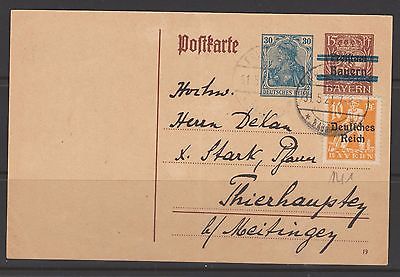 Postkarte
30 30
DEUTSCHES REICH
15
Bayern
BAYERN
10
Deutsches
Reich
BAYERN
Hochw.
Herrn Dekan
X. Stark, Pfarrer
Thierhaupten
b/Meitingen
19